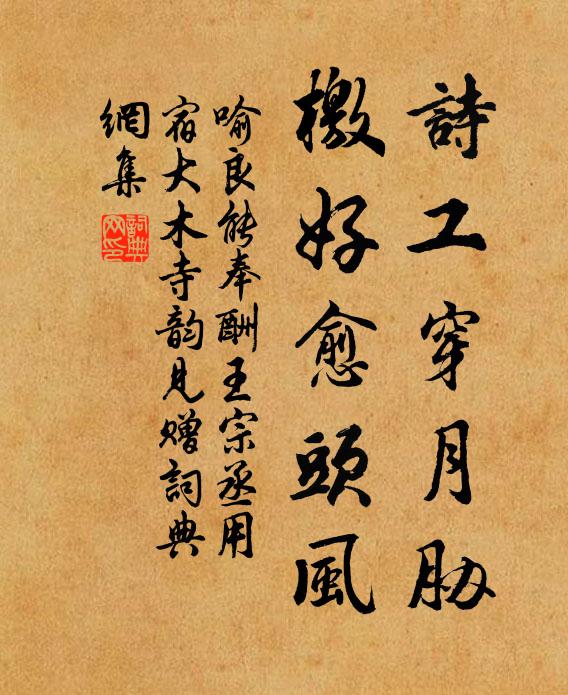 詩工穿月胁
檄好愈頭風
喻良能奉酬王宗丞用
宿大木寺韵見贈詞典
網集
詞典網印